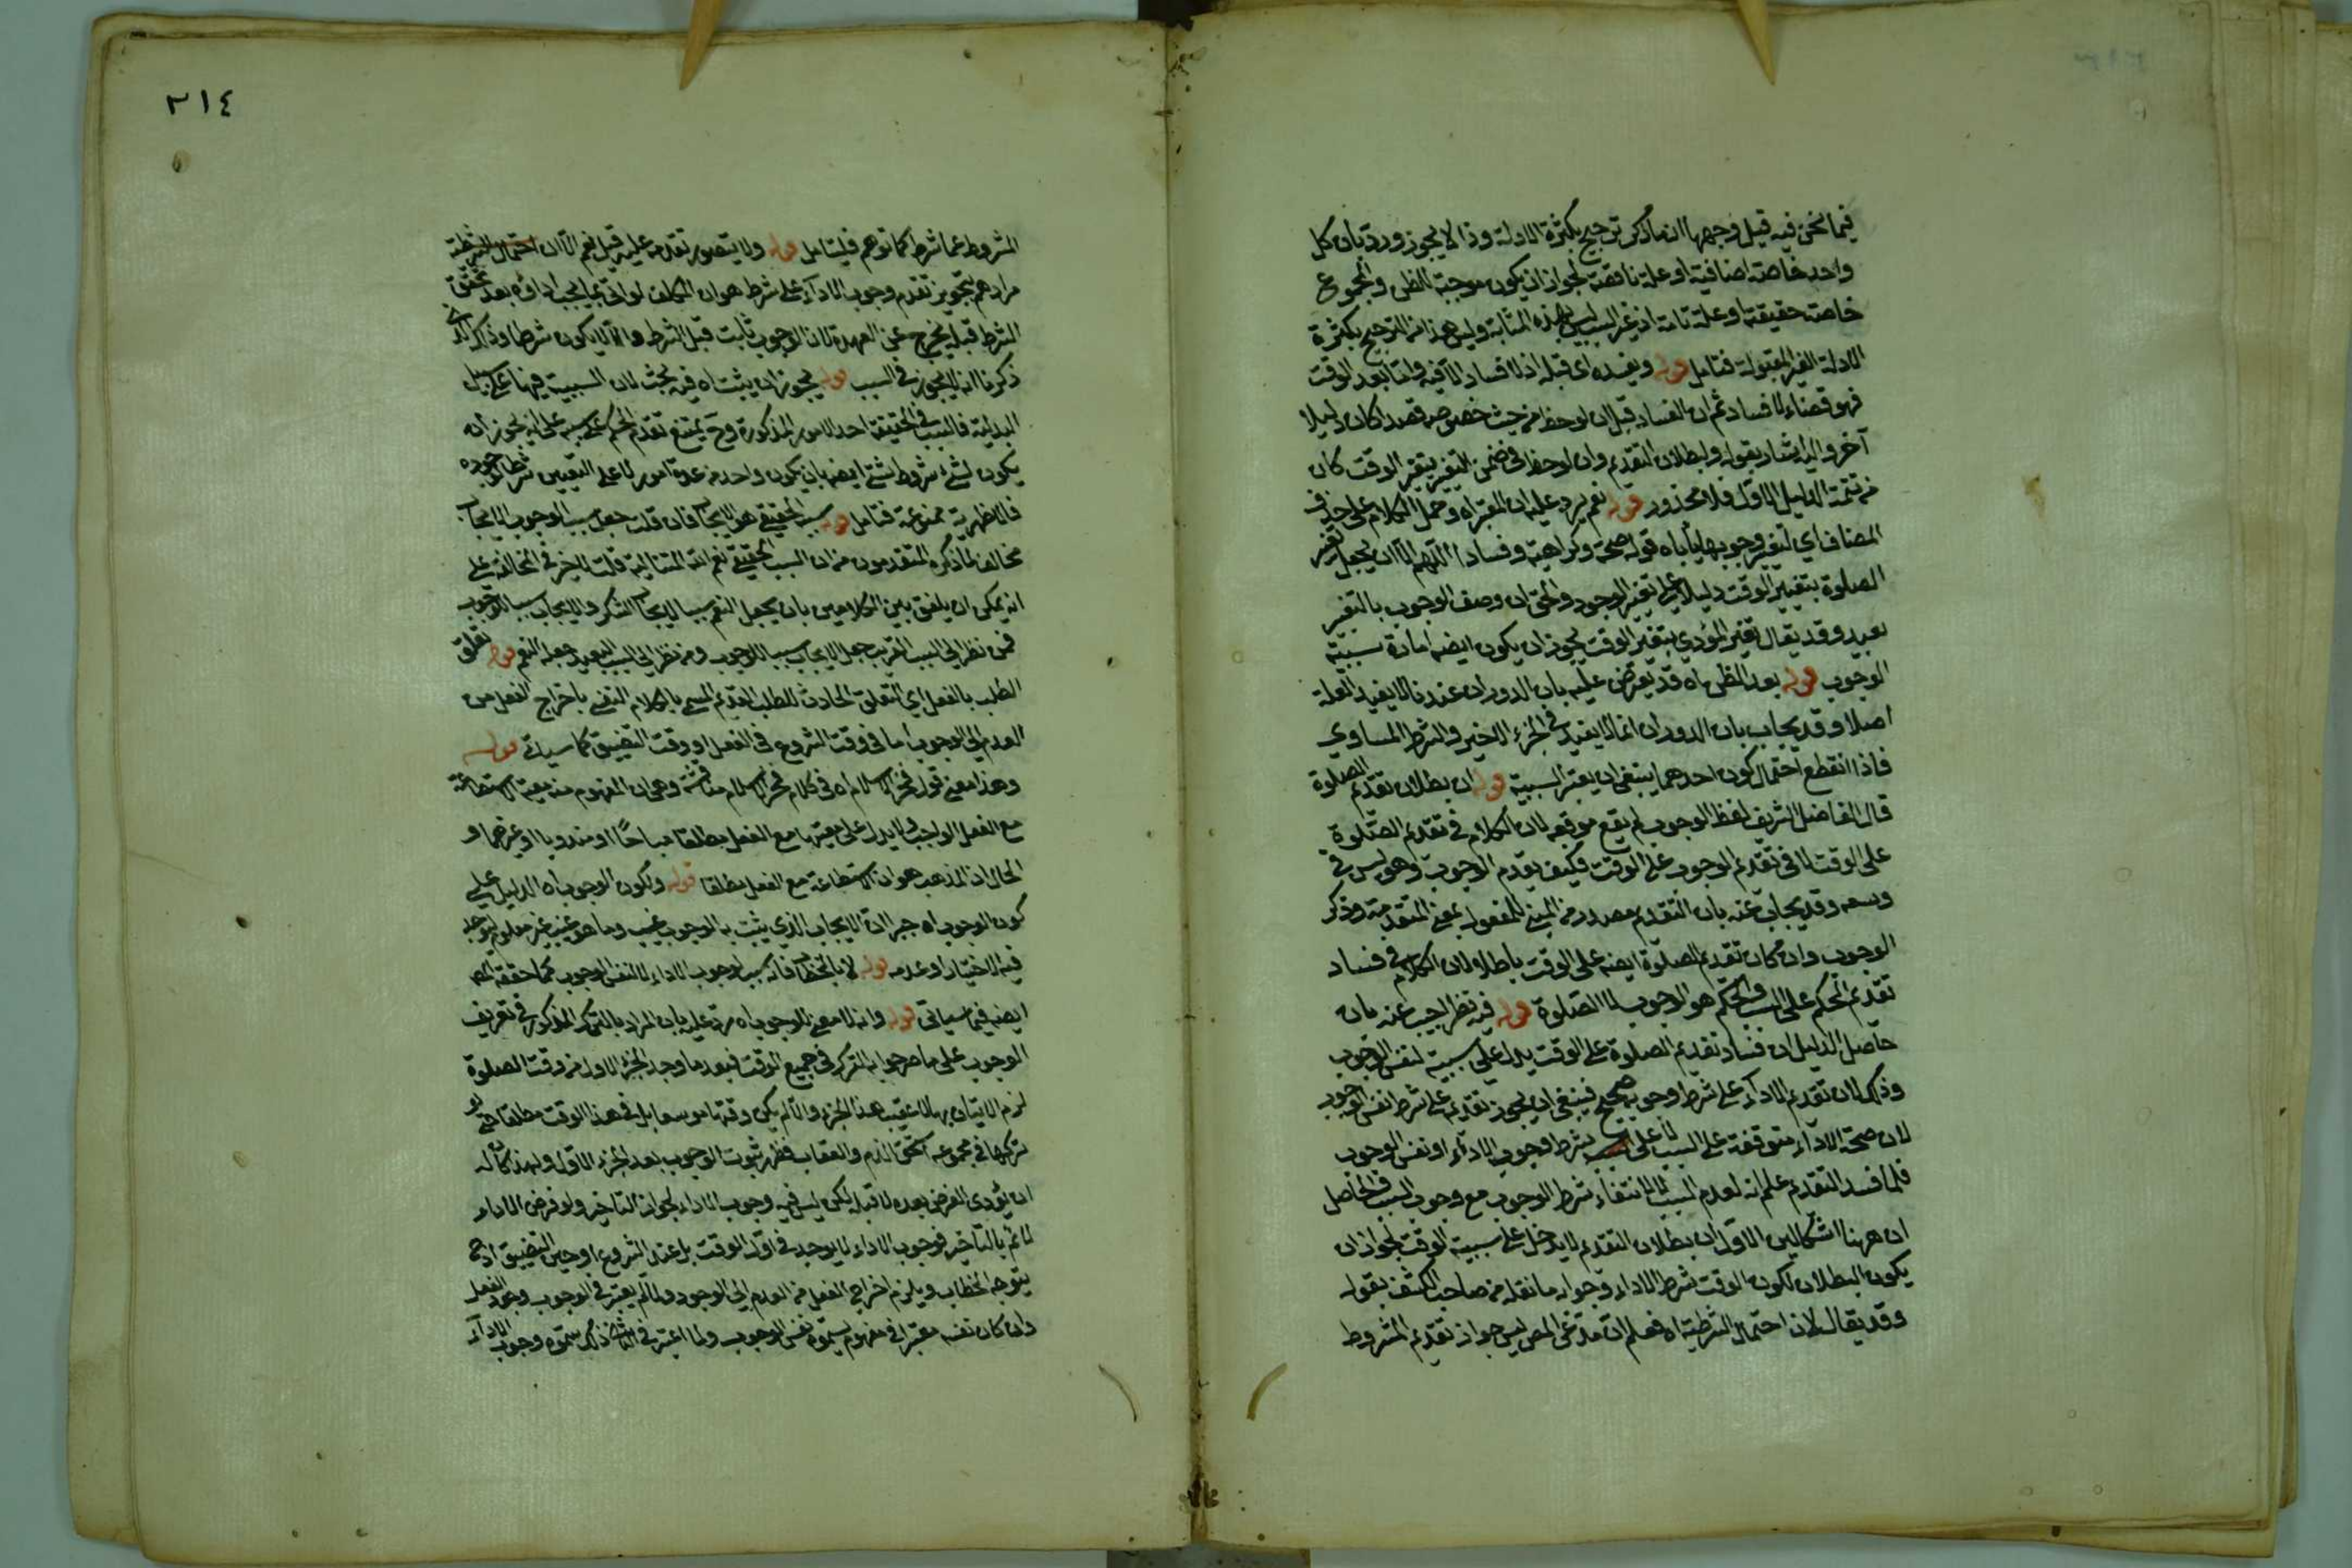 فيما نحن فيه قيل وجهها ان ما ذكر ترجيح بكثرة الادلة وذا لا يجوز ورد بان كل
واحد خاصة اضافية او علة ناقصة لجواز ان يكون موجبة للظن والمجموع
خاصة حقيقة او علة تامة اذ غير السبب ليس بهذه المثابة وليس هذا من الترجيح بكثرة
الادلة الغير المقبولة فتامل قوله ويفسده اى قبله اذ لا فساد الا فيه واما بعد الوقت
فهو قضاء لا فساد ثم ان الفساد قبل ان لوحظ من حيث خصوصه قصدا كان دليلا
آخر واليه اشار بقوله ولبطلان التقديم وان لوحظ فى ضمن التغير بتغير الوقت كان
من تتمة الدليل الاول فلا محذور قوله نعم يرد عليه ان المعتبر اه وحمل الكلام على حذف
المضاف اي لتغير وجوبها يأباه قوله صحة وكراهية وفسادا اللهم الا ان يجعل تغير
الصلوة بتغيير الوقت دليلا على تغير الوجوب والحق ان وصف الوجوب بالتغير
بعيد وقد يقال تغير المؤدي بتغير الوقت يجوز ان يكون ايضا امارة سببية
الوجوب قوله بعد الظن اه قد يعترض عليه بان الدوران عندنا لا يفيد العلة
اصلا وقد يجاب بان الدوران انما لا يفيد في الجزء الاخير والشرط المساوي
فاذا انقطع احتمال كون احدهما ينبغي ان يعتبر السببية قوله ان بطلان تقدم الصلوة
قال الفاضل الشريف لفظ الوجوب لم يقع موقعه لان الكلام في تقدم الصلوة
على الوقت لا في تقدم الوجوب على الوقت فكيف يقدم الوجوب وهو ليس في
وسعه وقد يجاب عنه بان التقدم مصدر من المبني للمفعول بمعنى المتقدمة وذكر
الوجوب وان كان تقدم الصلوة ايضا على الوقت باطلا لان الكلام في فساد
تقدم الحكم على السبب والحكم هو الوجوب لا الصلوة قوله فيه نظر اجيب عنه بان
حاصل الدليل ان فساد تقديم الصلوة على الوقت يدل على سببية لنفس الوجوب
وذلك لان تقدم الاداء على شرط وجوبه صحيح فينبغي ان يجوز تقديمه على شرط نفس الوجوب
لان صحة الاداء متوقفة على السبب لا على شرط وجوب الاداء او نفس الوجوب
فلما فسد التقدم علم انه لعدم السبب لا لانتفاء شرط الوجوب مع وجوب السبب فالحاصل
ان ههنا اشكالين الاول ان بطلان التقدم لا يدخل على سببية الوقت لجواز ان
يكون البطلان لكون الوقت شرط الاداء وجوابه ما نقله من صاحب الكشف بقوله
وقد يقال لان احتمال الشرطية اه فعلم ان مدعى المص ليس جواز تقديم المشروط
٢١٤
المشروط عما شرط كما توهم فليتامل قوله ولا يتصور تقدمه عليه قيل نعم الا ان احتمال الشرطية
مرادهم بتجويز تقدم وجوب الاداء على شرط هو ان المكلف لو اتى بما يجب اداؤه بعد تحقق
الشرط قبله يخرج عن العهدة لان الوجوب ثابت قبل الشرط والا لا يكون شرطا وذكر الذي
ذكرنا انه لا يجوز في السبب قوله يجوز ان يثبت اه فيه بحث لان السببية فيها على سبيل
البدلية فالسبب في الحقيقة احد الامور المذكورة وح يمتنع تقدم الحكم على سببه على انه يجوز ان
يكون لشئ شروط شتى ايضا بان يكون واحد من عدة امور لا على التعيين شرطا لوجوده
فالاظهرية ممنوعة فتامل قوله سببه الحقيقي هو الايجاب فان قلت جعل سبب الوجوب الايجاب
مخالف لما ذكره المتقدمون من ان السبب الحقيقي نعم الله المتتالية قلت لا خير في المخالفة على
انه يمكن ان يلفق بين الكلامين بان يجعل النعم سببا لايجاب الشكر والايجاب سببا للوجوب
فمن نظر الى السبب القريب جعل الايجاب سببا للوجوب ومن نظر الى السبب البعيد جعله النعم قوله تعلق
الطلب بالفعل اي التعلق الحادث للطلب القديم المسمى بالكلام النفسي باخراج الفعل من
العدم الى الوجوب اما في وقت الشروع في الفعل او وقت التضييق كما سيأتي قوله
وهذا معنى قول فخر الاسلام اه فى كلام فخر الاسلام مناقشة وهى ان المفهوم منه معية الاستطاعة
مع الفعل الواجب ولا يدل على معيتها مع الفعل مطلقا مباحًا او مندوبا او غيرهما و
الحال ان المذهب هو ان الاستطاعة مع الفعل مطلقا قوله ولكون الوجوب اه الدليل على
كون الوجوب اه جبرا ان الايجاب الذي يثبت به الوجوب غيب وما هو غيب غير معلوم لنوجد
فيه الاختيار او عدمه قوله لا بالخطاب فانه سبب لوجوب الاداء لا لنفس الوجوب كما حققه المص
ايضا فيما سيأتى قوله وانه لا معنى للوجوب اه يرد عليه بان المراد بالترك المذكور في تعريف
الوجوب على ما صرحوا به الترك في جميع الوقت فبعد ما وجد الجزء الاول من وقت الصلوة
لزم الاتيان بها لا عقيب هذا الجزء والا لم يكن وقتها موسعا بل في هذا الوقت مطلقا حتى لو
تركها في مجموعه استحق الذم والعقاب فظهر ثبوت الوجوب بعد الجزء الاول ولهذا كان له
ان يؤدي الفرض بعده لا قبله لكن ليس فيه وجوب الاداء لجواز التاخير ولو فرض الاداء
لا ثم بالتأخير فوجوب الاداء لا يوجد في اول الوقت بل عند الشروع او حين التضييق اذ ح
يتوجه الخطاب ويلزم اخراج الفعل من العدم الى الوجود ولما لم يعتبر في الوجوب وجود الفعل
وان كان نفسه معتبرا في مفهومه يسموه نفس الوجوب ولما اعتبر في الثاني ذلك سموه وجوب الاداء